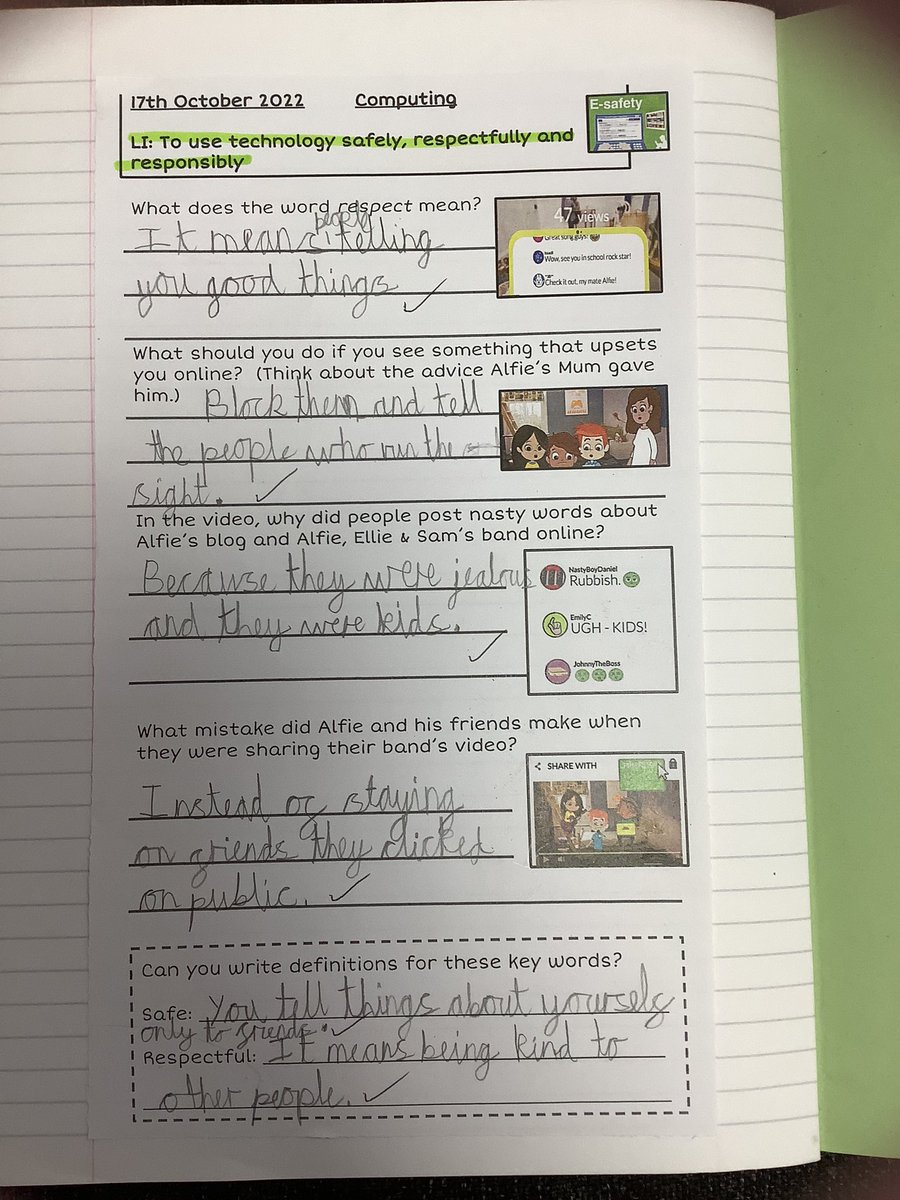 17th October 2022 Computing
E-safety
LI: To use technology safely, respectfully and
responsibly
What does the word respect mean?
people
It means telling
you good things
47 views
Great song guys!
Wow, see you in school rock star!
Check it out, my mate Alfie!
What should you do if you see something that upsets
you online? (Think about the advice Alfie's Mum gave
him.) Block them and tell
the people who run the
sight.
In the video, why did people post nasty words about
Alfie's blog and Alfie, Ellie & Sam's band online?
Because they were jealous
and they were kids.
NastyBoyDaniel
Rubbish.
EmilyC
UGH - KIDS!
JohnnyTheBoss
What mistake did Alfie and his friends make when
they were sharing their band's video?
Instead of staying
on friends they clicked
on public.
< SHARE WITH
Can you write definitions for these key words?
Safe: You tell things about yourself
only to friends.
Respectful: It means being kind to
other people.